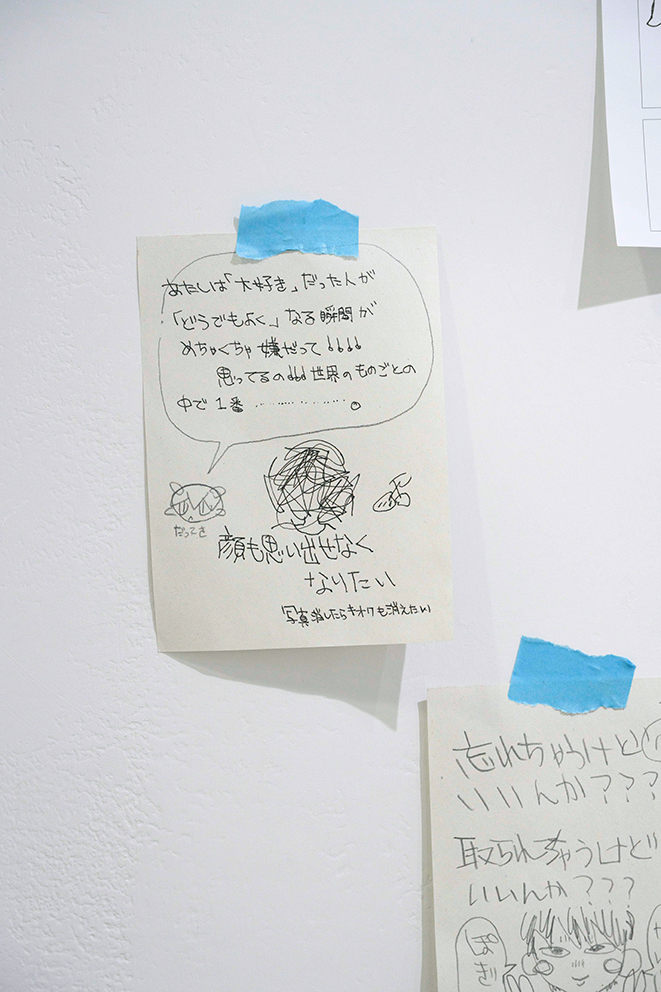 あたしは「大好き」だった人が
「どうでもよく」なる瞬間が
めちゃくちゃ嫌だって!!!!
思ってるの!!!世界のものごとの
中で1番……………。
だってさ
顔も思い出せなく
なりたい
写真消したらキオクも消えたい
忘れちゃうけど
いいんか???
取られちゃうけど
いいんか???
ぽぎ